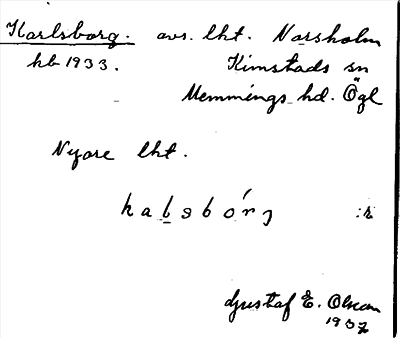 Karlsborg. avs. lht. Norsholm
kb 1933. Kimstads sn
Memmings hd. Ögl
Nyare lht.
:r
Gustaf E. Olson
1937